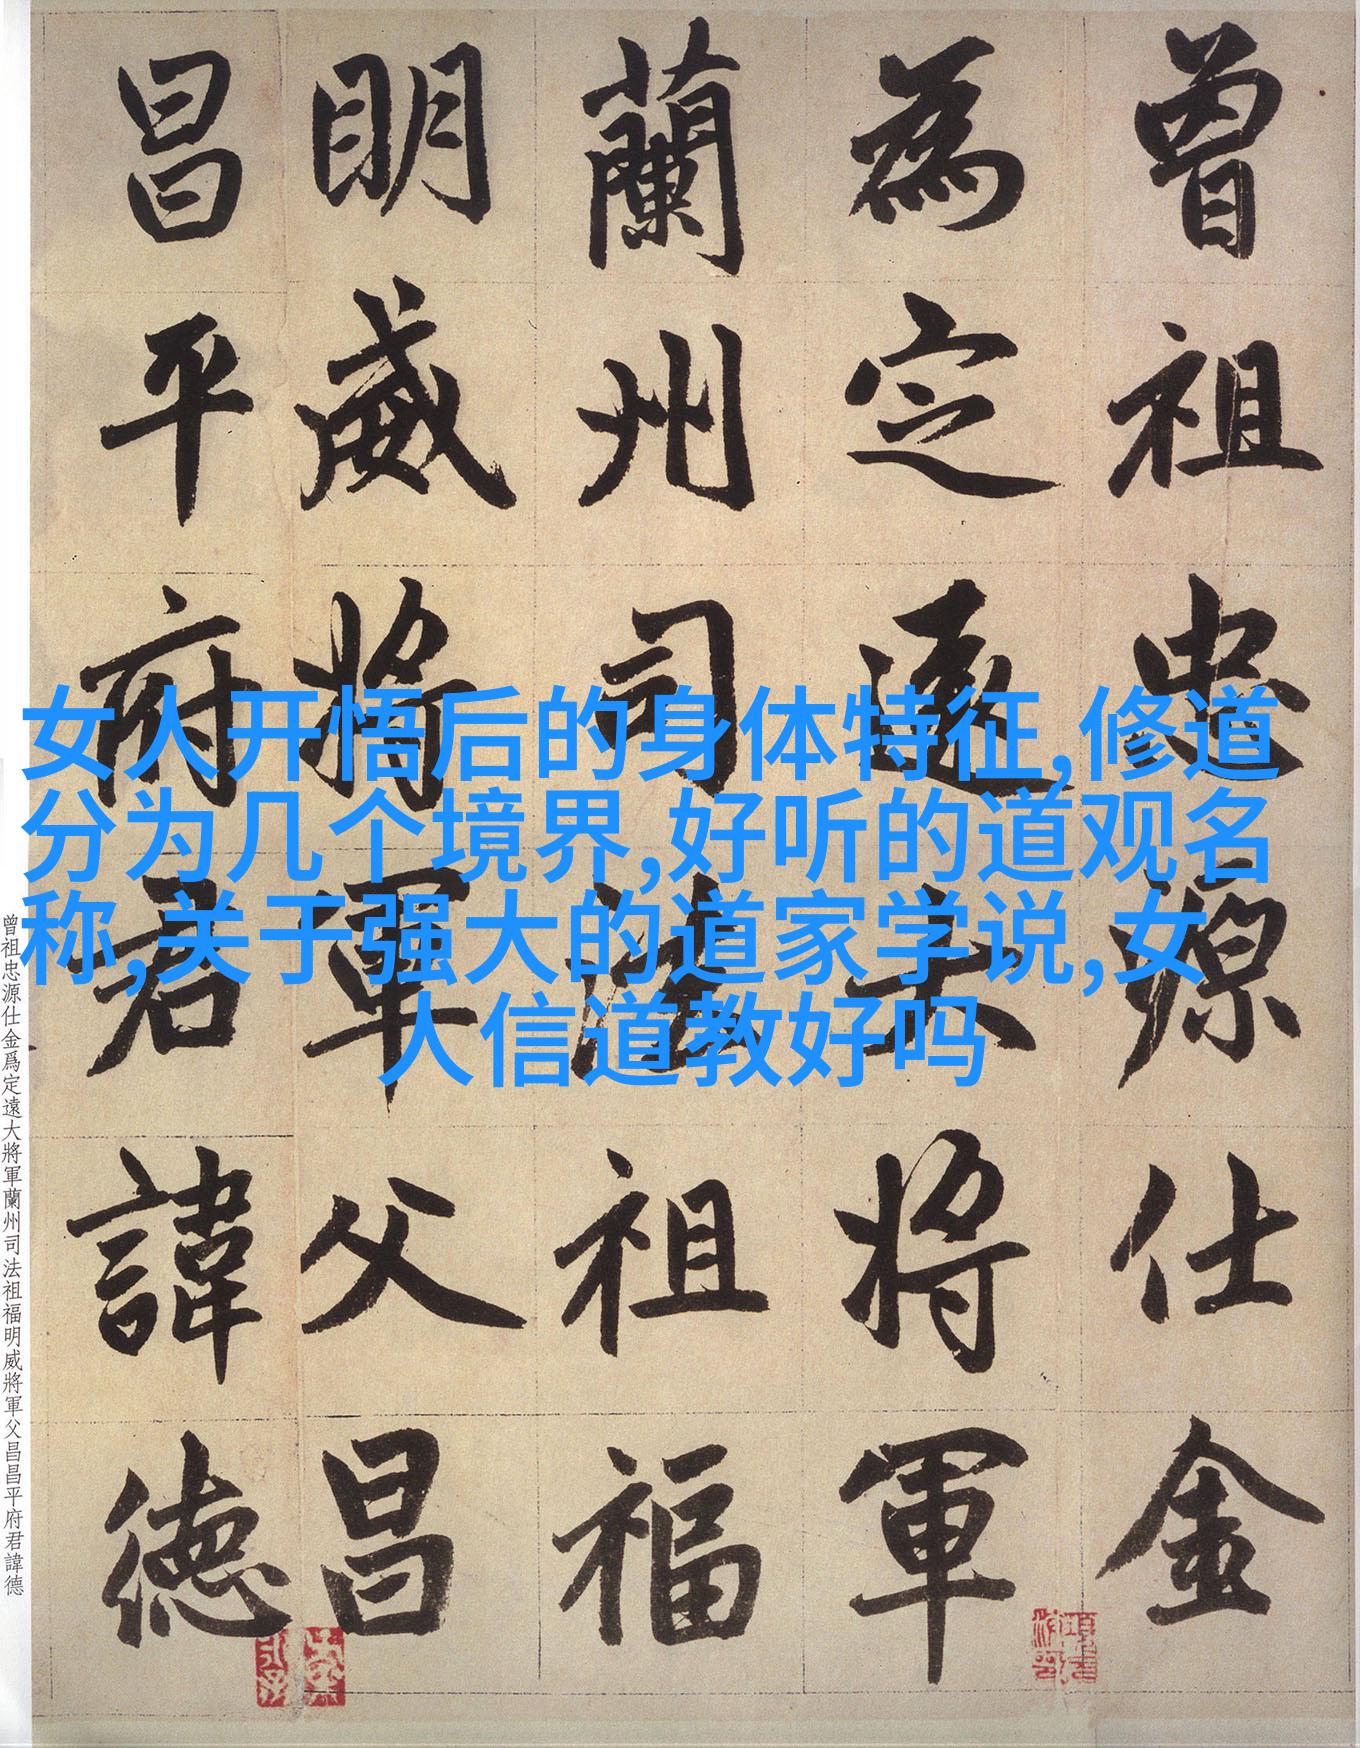 曾祖忠源仕金
為定遠大將軍
蘭州司法祖福
明威將軍父昌
昌平府君諱德
女人开悟后的身体特征,修道
分为几个境界,好听的道观名
称,关于强大的道家学说,女
人信道教好吗
曾祖忠源仕金爲定遠大將軍蘭州司法祖福明威將軍父昌昌平府君諱德